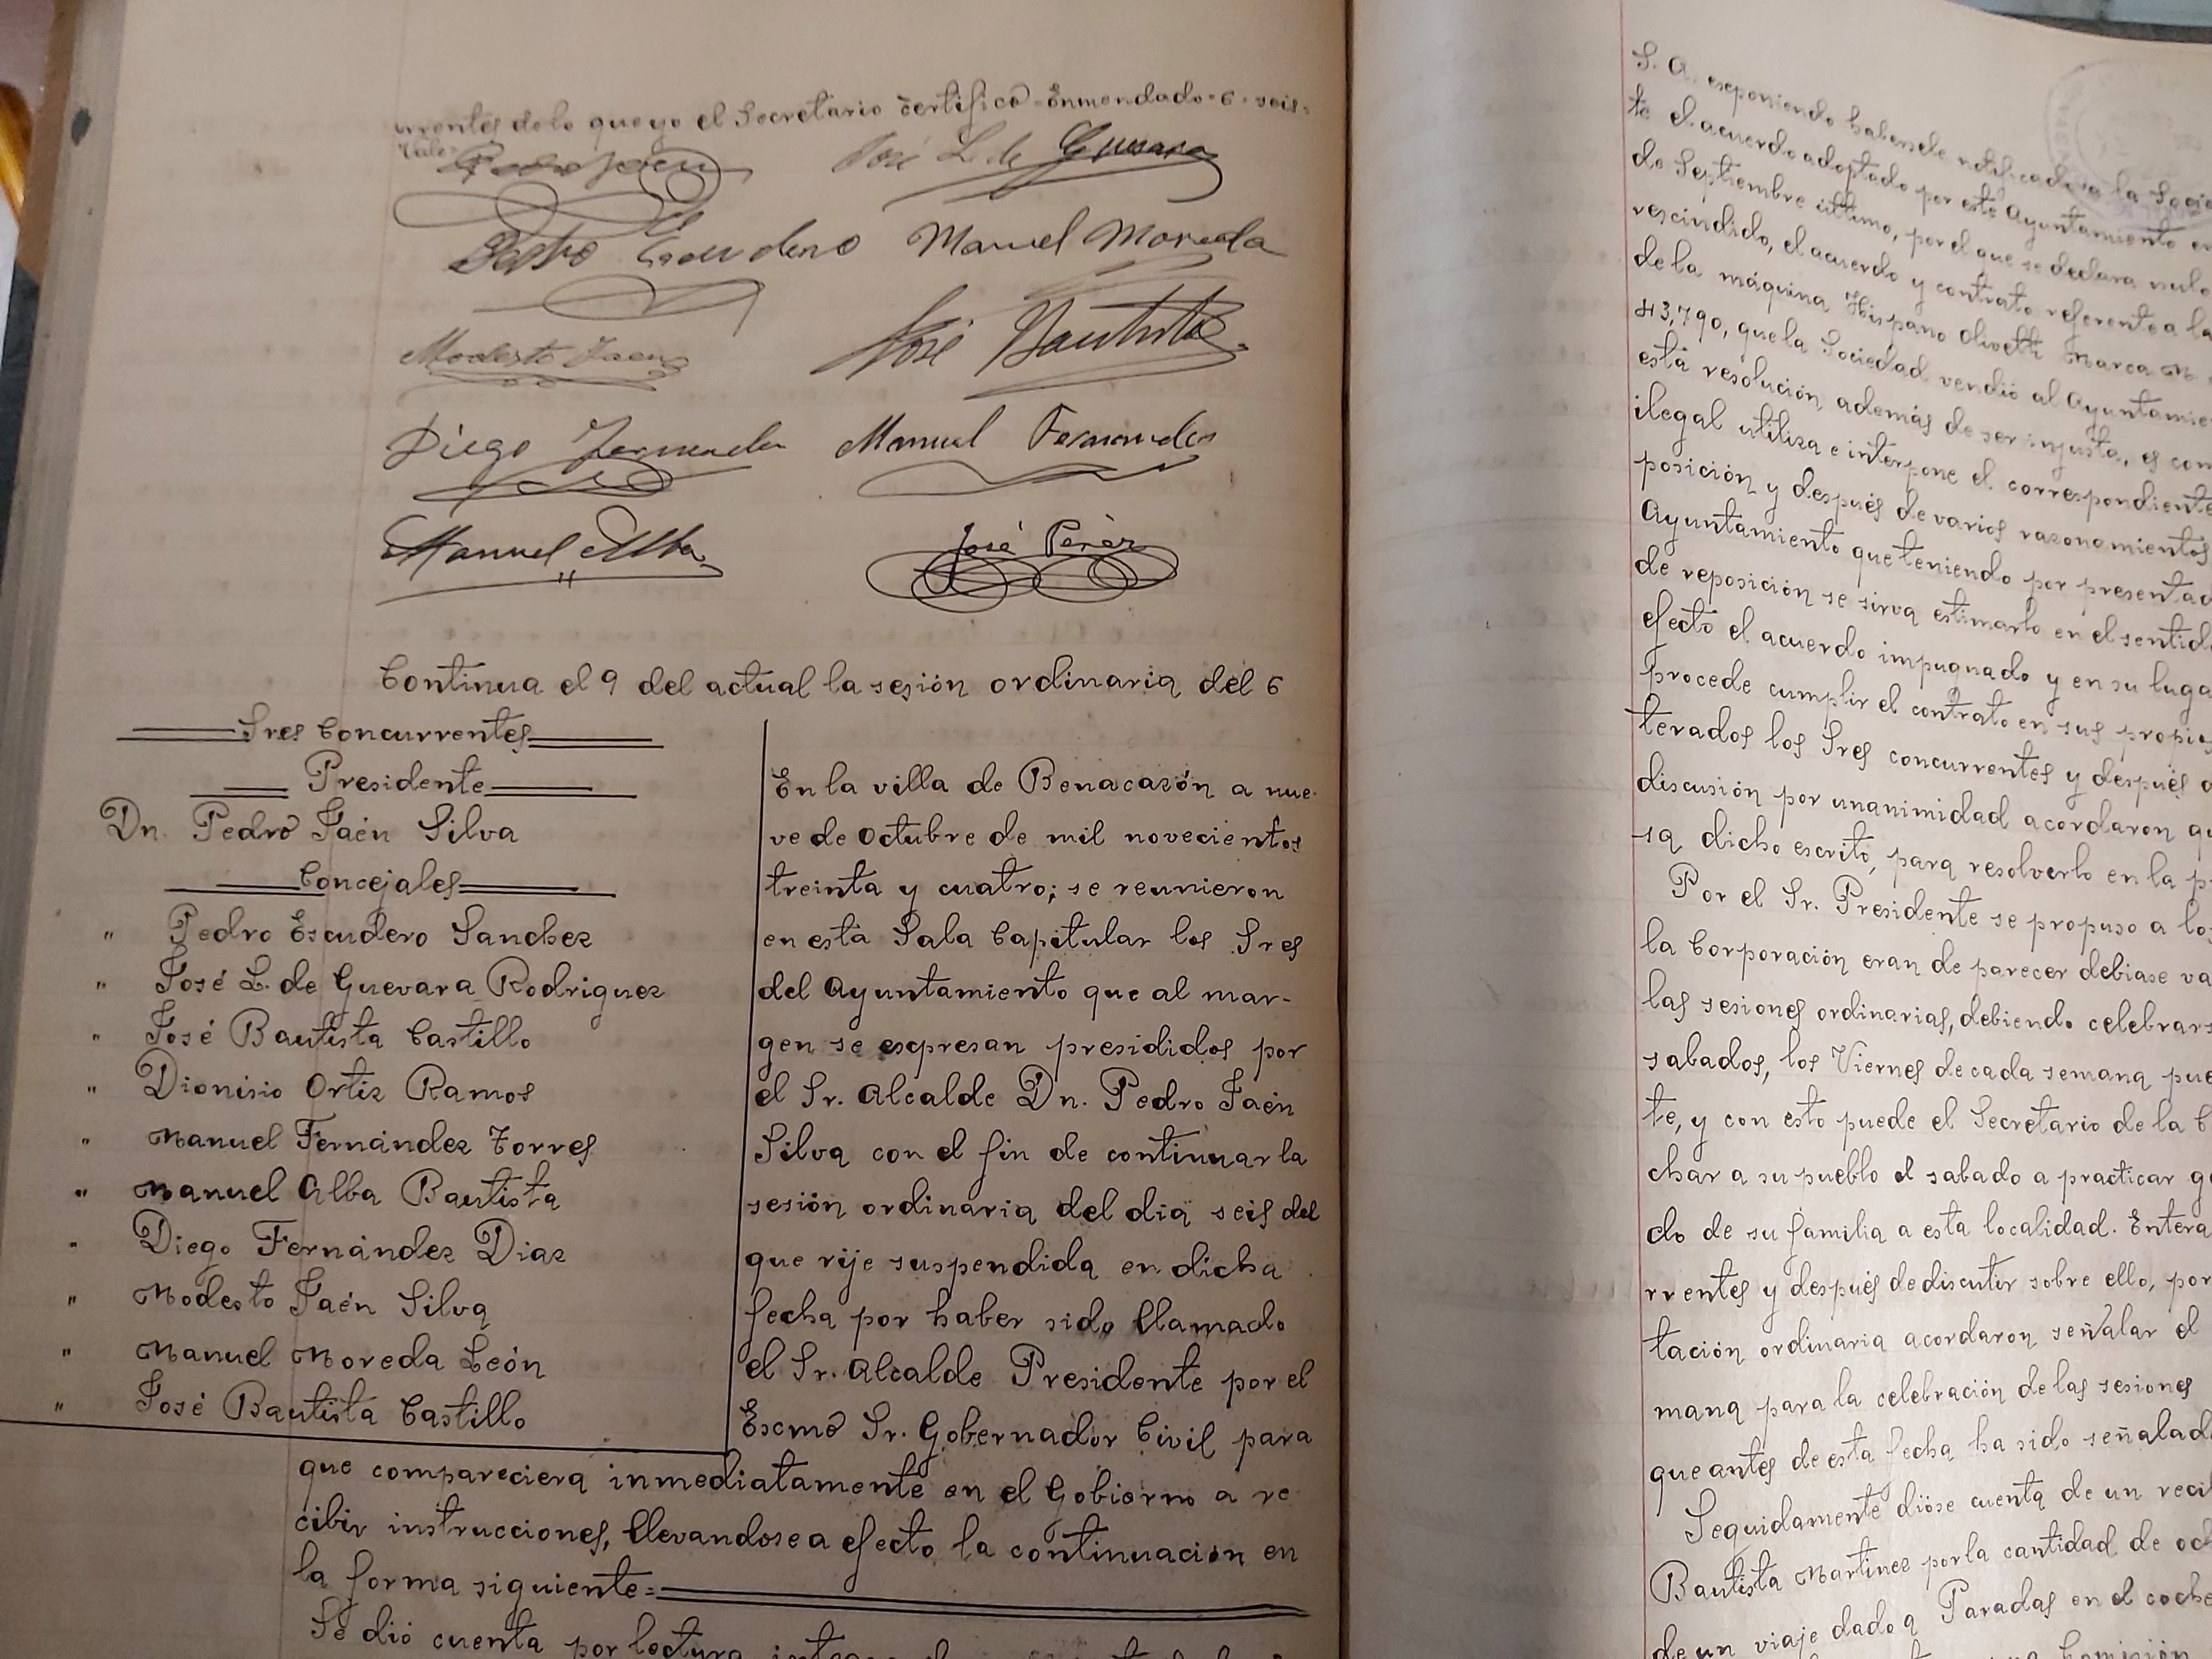 rrentes de lo que yo el Secretario certifico=Enmendado=6=seis=
Vale=
Pedro Jaén
José L de Guevara
Pedro Escudero
Manuel Moreda
Modesto Jaen
José Bautista
Diego Fernandez
Manuel Fernandez
Manuel Alba
José Pérez
Continua el 9 del actual la sesión ordinaria del 6
Sres Concurrentes
Presidente
Dn. Pedro Jaén Silva
Concejales
" Pedro Escudero Sanchez
" José L. de Guevara Rodriguez
" José Bautista Castillo
" Dionisio Ortiz Ramos
" Manuel Fernández Torres
" Manuel Alba Bautista
" Diego Fernández Diaz
" Modesto Jaén Silva
" Manuel Moreda León
" José Bautista Castillo
En la villa de Benacazón a nue-
ve de Octubre de mil novecientos
treinta y cuatro; se reunieron
en esta Sala Capitular los Sres
del Ayuntamiento que al mar-
gen se escpresan presididos por
el Sr. Alcalde Dn. Pedro Jaén
Silva con el fin de continuar la
sesión ordinaria del dia seis del
que rije suspendida en dicha
fecha por haber sido llamado
el Sr. Alcalde Presidente por el
Escmo Sr. Gobernador Civil para
que compareciera inmediatamente en el Gobierno a re
cibir instrucciones, llevandose a efecto la continuación en
la forma siguiente=
Se dió cuenta por lectura
S. A. esponiendo habersele notificado a la Socie
te el acuerdo adoptado por este Ayuntamiento en
de Septiembre último, por el que se declara nulo
rescindido, el acuerdo y contrato referente a la
de la máquina Hispano Olivetti Marca M.
43,790, que la Sociedad vendió al Ayuntamien
esta resolución además de ser injusta, es con
ilegal utiliza e interpone el correspondiente
posición y después de varios razonamientos
Ayuntamiento que teniendo por presentad
de reposición se sirva estimarlo en el sentid
efecto el acuerdo impugnado y en su luga
procede cumplir el contrato en sus propio
terados los Sres concurrentes y después d
discusión por unanimidad acordaron qu
sa dicho escrito, para resolverlo en la p
Por el Sr. Presidente se propuso a los
la Corporación eran de parecer debiase va
las sesiones ordinarias, debiendo celebrars
sabados, los Viernes de cada semana pue
te, y con esto puede el Secretario de la C
char a su pueblo el sabado a practicar ge
do de su familia a esta localidad. Entera
rrentes y después de discutir sobre ello, por
tación ordinaria acordaron señalar el
mana para la celebración de las sesiones
que antes de esta fecha ha sido señalad
Seguidamente diose cuenta de un reci
Bautista Martinez por la cantidad de och
de un viaje dado a Paradas en el coche
Comisión